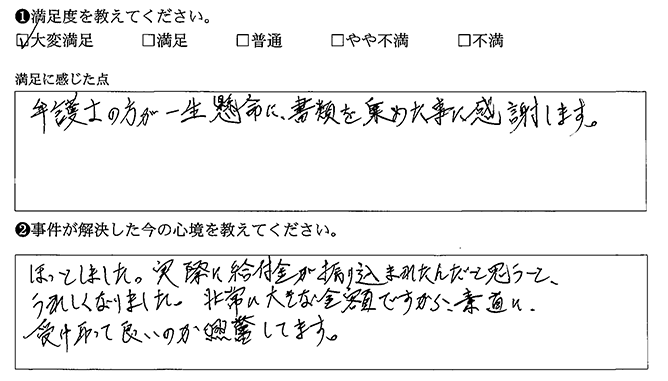 ❶満足度を教えてください。
☑大変満足 □満足 □普通 □やや不満 □不満
満足に感じた点
弁護士の方が一生懸命に、書類を集めた事に感謝します。
❷事件が解決した今の心境を教えてください。
ほっとしました。実際に給付金が振り込まれたんだと思うと、
うれしくなりました。非常に大きな金額ですから、素直に、
受け取って良いのか興奮してます。